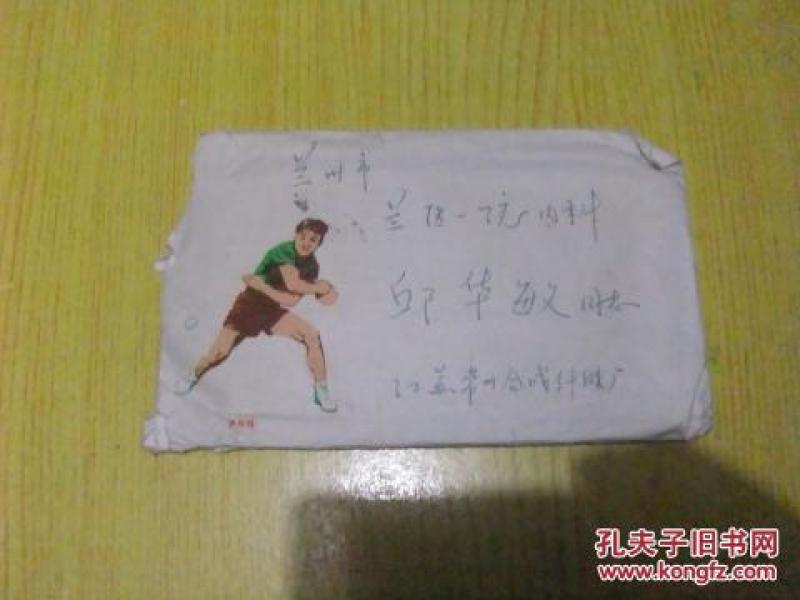 兰州市
兰医一院内科
邱华敏同志
江苏常州合成纤维厂
孔夫子旧书网
www.kongfz.com